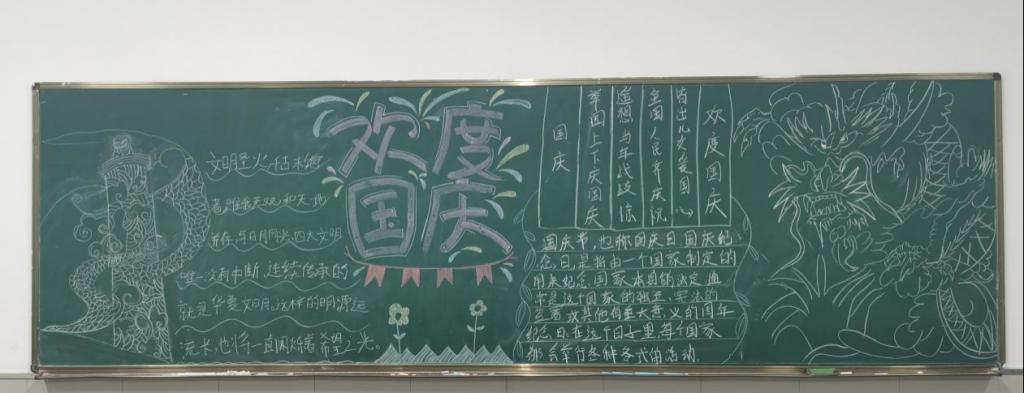 文明星火,枯木
着,唯系天双,和天地
并存,与日月同光,四大文明
唯一没有中断,连续传承的
就是华夏文明。这样的明源远
流长,也将一直闪烁着希望之光。
欢度
国庆
欢度国庆
皆出儿女爱国心
全国人民齐庆祝
遥想当年战
举国上下庆国庆
国庆
国庆节,也称国庆日、国庆纪
念日,是指由一个国家制定的
用来纪念国家本身的法定
常是这个国家的独立、宪法的
签署,或其他有重大意义的周年
纪念日,在这个日子里每个国家
都会举行各种各式的活动